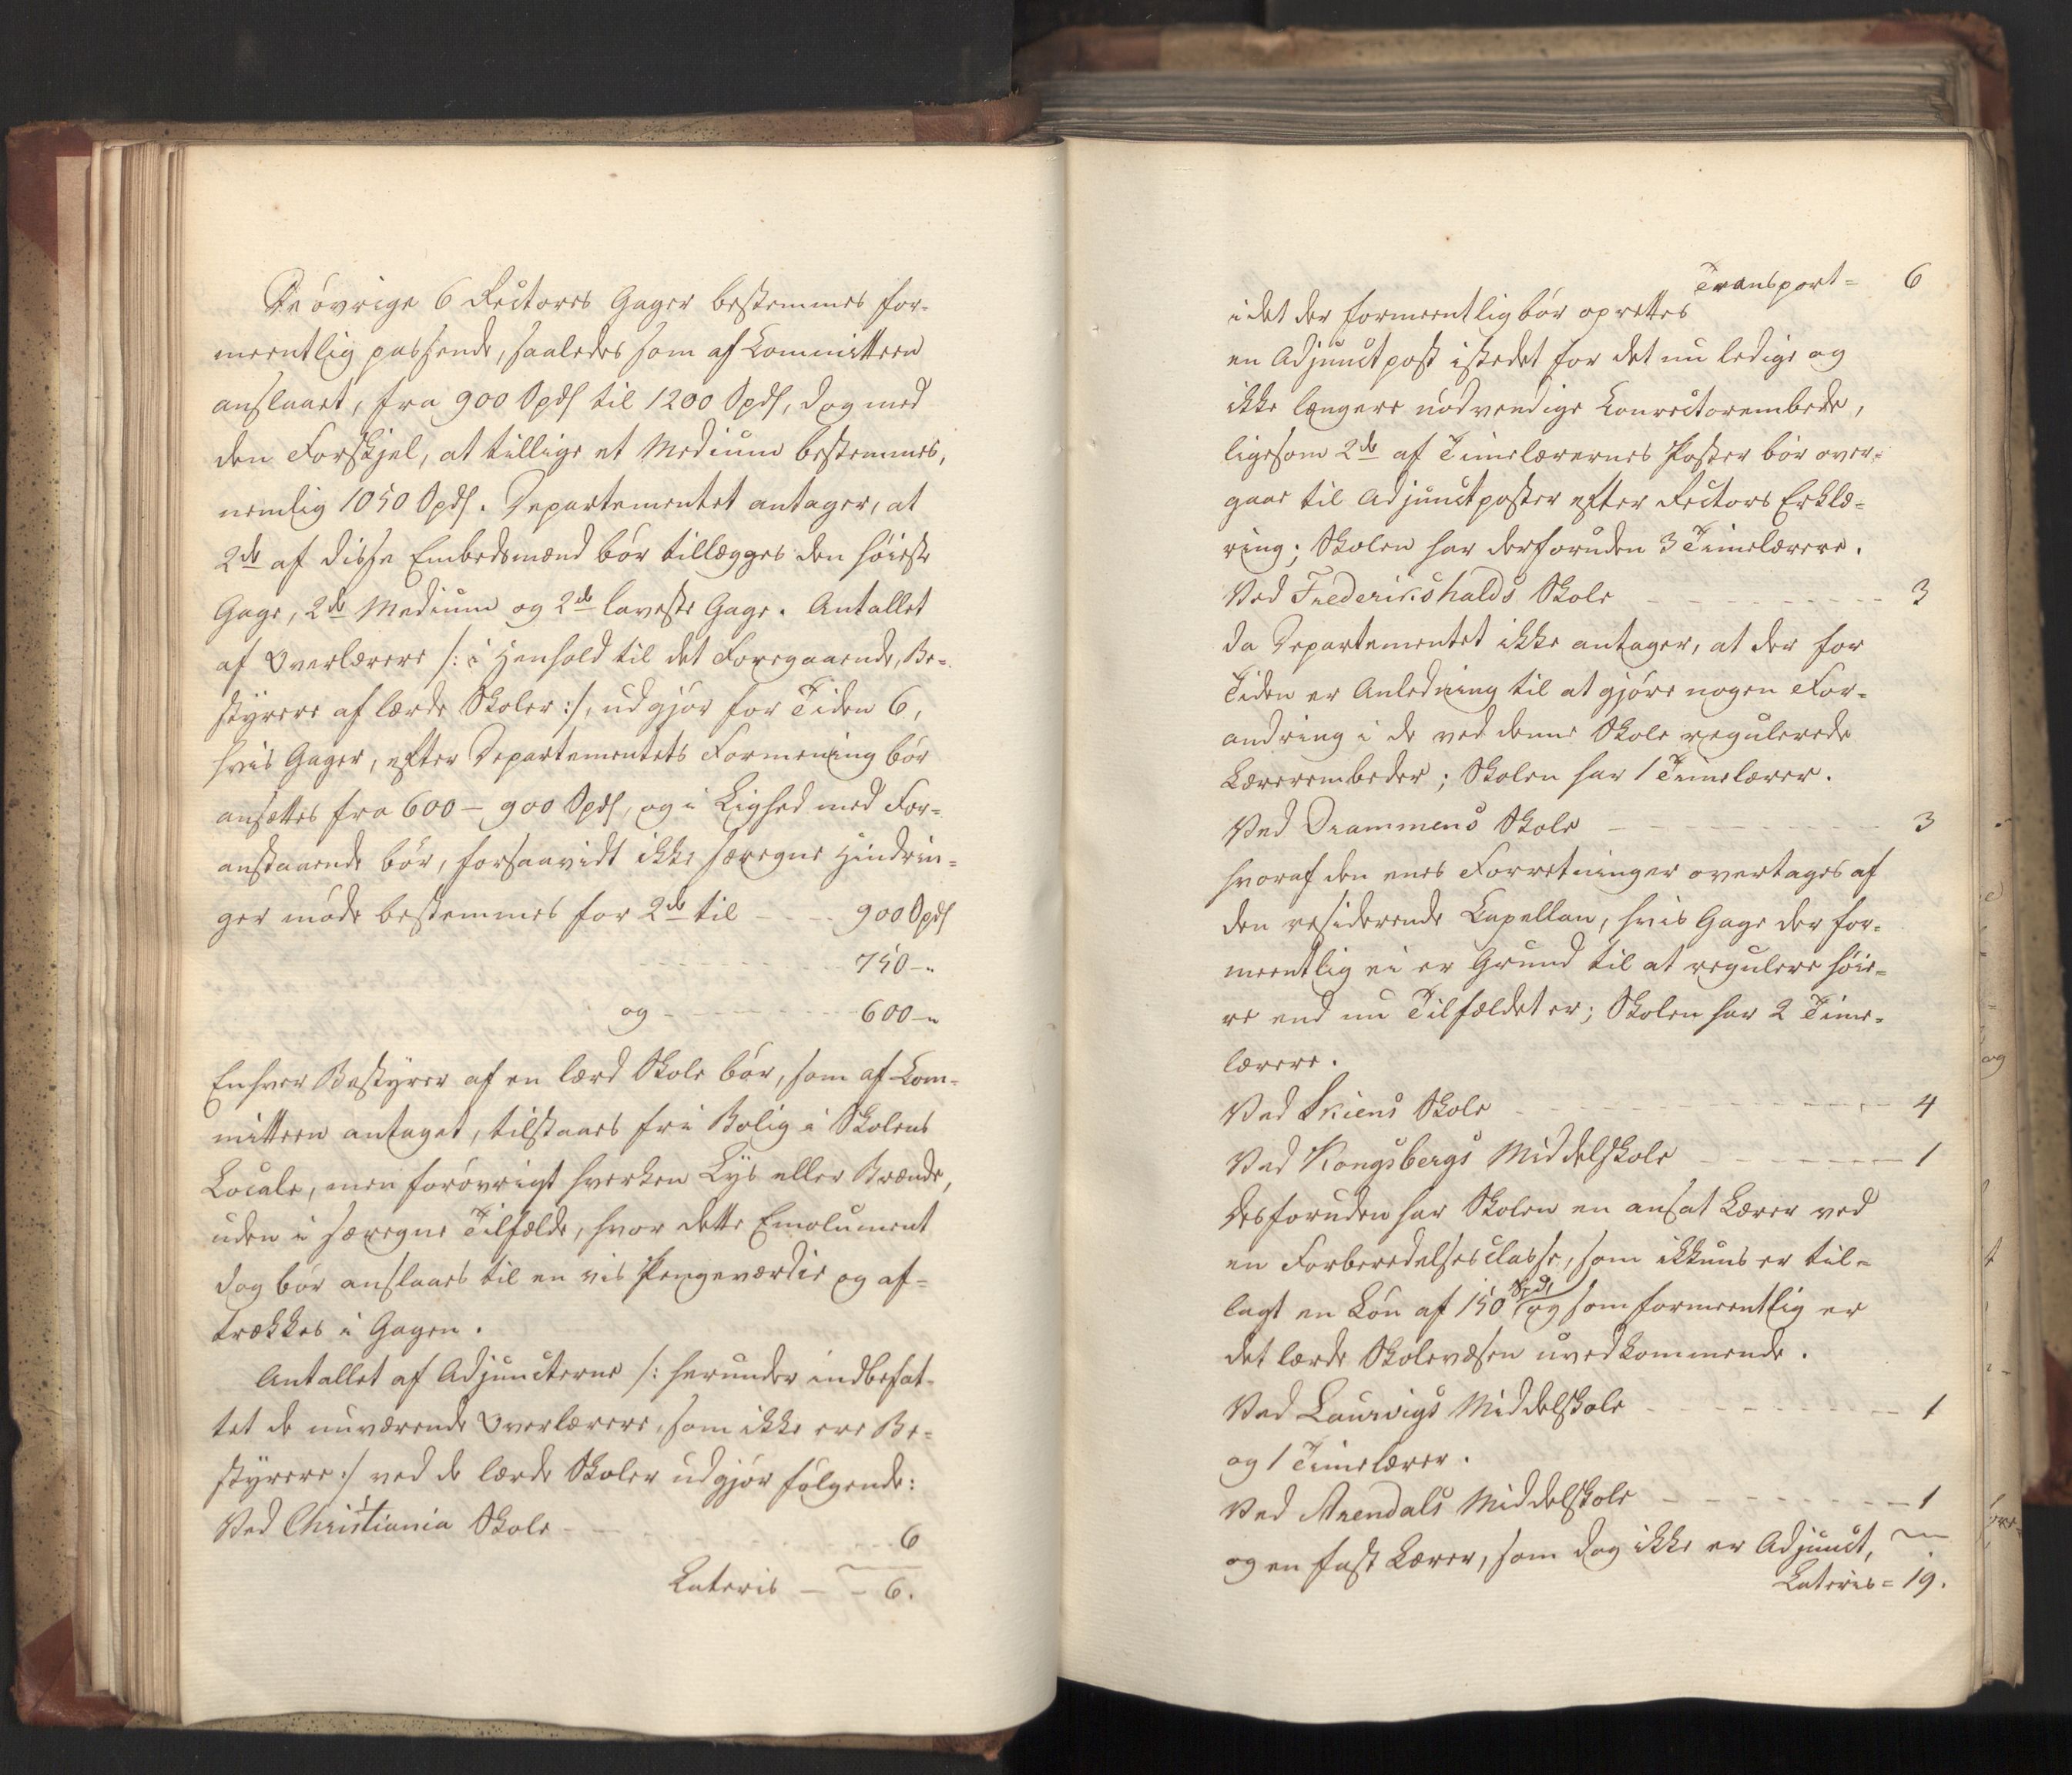 De övrige 6 Rectorers Gager bestemmes for-
meentlig passende, saaledes som af Committeen
anslaaet, fra 900 Spds til 1200 Spds, dog med
den Forskjel, at tillige et Medium bestemmes,
nemlig 1050 Spds. Departementet antager, at
2de af disse Embedsmænd bör tillægges den höieste
Gage, 2de Medium og 2de laveste Gage. Antallet
af Overlærere /: i Henhold til det Foregaaende, Be-
styrere af lærde Skoler :/, udgjör for Tiden 6,
hvis Gager, efter Departementets Formening bör
ansættes fra 600 - 900 Spds, og i Lighed med For-
anstaaende bör, forsaavidt ikke særegne Hindrin-
ger möde bestemmes for 2de til - - - 900 Spds
- - - 750 - "
og - - - 600 - "
Enhver Bestyrer af en lærd Skole bör, som af Com-
mitteen antaget, tilstaaes fri Bolig i Skolens
Locale, men forövrigt hverken Lys eller Brænde,
uden i særegne Tilfælde, hvor dette Emolument
dog bör anslaaes til en vis Pengeværdie og af-
trækkes i Gagen.
Antallet af Adjuncterne /: herunder indbefat-
tet de nuværende Overlærere, som ikke ere Be-
styrere :/ ved de lærde Skoler udgjör fölgende:
Ved Christiania Skole - - - 6
Lateris - - 6.
Transport = 6
idet der formeentlig bör oprettes
en Adjunctpost istedet for det nu ledige og
ikke længere nödvendige Conrectorembede,
ligesom 2de af Timelærernes Poster bör over-
gaae til Adjunctposter efter Rectors Erklæ-
ring; Skolen har derforuden 3 Timelærere.
Ved Frederikshalds Skole - - - 3
da Departementet ikke antager, at der for
Tiden er Anledning til at gjöre nogen For-
andring i de ved denne Skole regulerede
Lærerembeder; Skolen har 1 Timelærer.
Ved Drammens Skole - - - 3
hvoraf den enes Forretninger overtages af
den residerende Capellan, hvis Gage der for-
meentlig ei er Grund til at regulere höie-
re end nu Tilfældet er; Skolen har 2 Time-
lærere.
Ved Skiens Skole - - - 4
Ved Kongsbergs Middelskole - - - 1
desforuden har Skolen en ansat Lærer ved
en Forberedelsesclasse, som ikkuns er til-
lagt en Lön af 150 Spd, og som formeentlig er
det lærde Skolevæsen uvedkommende.
Ved Laurvigs Middelskole - - - 1
og 1 Timelærer.
Ved Arendals Middelskole - - - 1
og en fast Lærer, som dog ikke er Adjunct,
Lateris = 19.